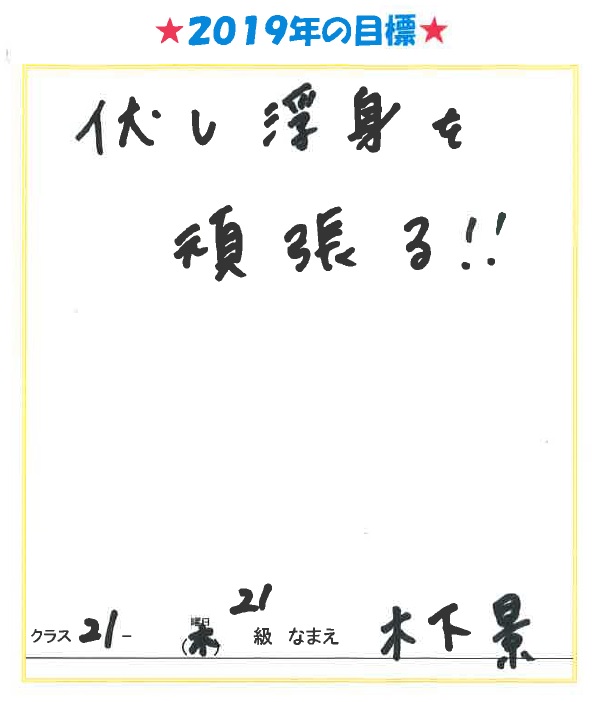 ★2019年の目標★
伏し浮身を
頑張る!!
クラス 21- 曜日(木) 21級 なまえ 木下景